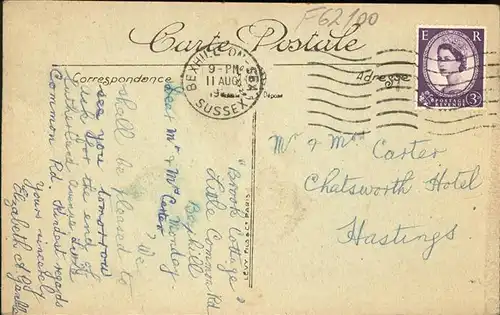 F62/00
Carte Postale
Correspondance
Adresse
E R
POSTAGE REVENUE
3D
BEXHILL-ON-SEA
9-PM
11 AUG
19
SUSSEX
"Brook Cottage"
Little Common Rd
Bexhill
Monday.
Dear Mr & Mrs Carter,
We
shall be pleased to
see you tomorrow
ask for the end of
Common Rd. Kindest regards
Yours sincerely
Elizabeth A.
Mr & Mrs Carter
Chatsworth Hotel
Hastings
PARIS